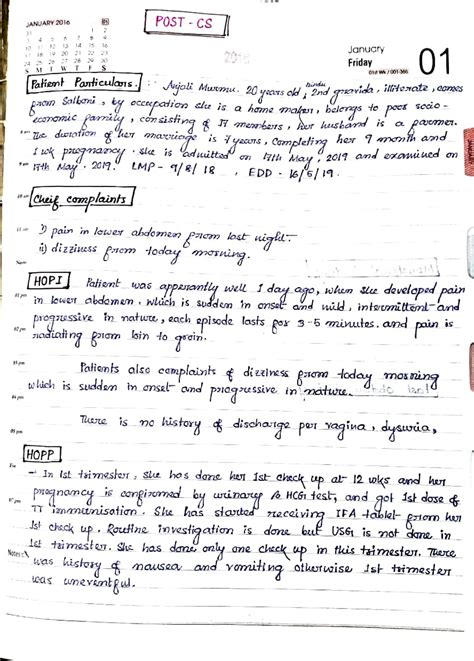 POST - CS
JANUARY 2016
January
Friday
01
2016
S M T W T F S
Patient Particulars. : - Anjali Murmu. 20 years old, hindu, 2nd gravida, illiterate, comes
from Salboni, by occupation she is a home maker, belongs to poor socio-
economic family, consisting of 17 members, her husband is a farmer.
The duration of her marriage is 7 years, completing her 9 month and
1 wk pregnancy. She is admitted on 17th May, 2019 and examined on
17th May. 2019. LMP - 9/8/18, EDD - 16/5/19.
Cheif complaints
i) pain in lower abdomen from last night.
ii) dizziness from today morning.
HOPI Patient was apperantly well 1 day ago, when she developed pain
in lower abdomen, which is sudden in onset and mild, intermittent and
progressive in nature, each episode lasts for 3-5 minutes. and pain is
radiating from loin to groin.
Patients also complaints of dizziness from today morning
which is sudden in onset and progressive in nature.
There is no history of discharge per vagina, dysuria,
HOPP
- In 1st trimester, she has done her 1st check up at 12 wks and her
pregnancy is confirmed by urinary β HCG test, and got 1st dose of
TT immunisation. She has started receiving IFA tablet from her
1st check up. Routine investigation is done but USG is not done in
1st trimester. She has done only one check up in this trimester. There
was history of nausea and vomiting otherwise 1st trimester
was uneventful.